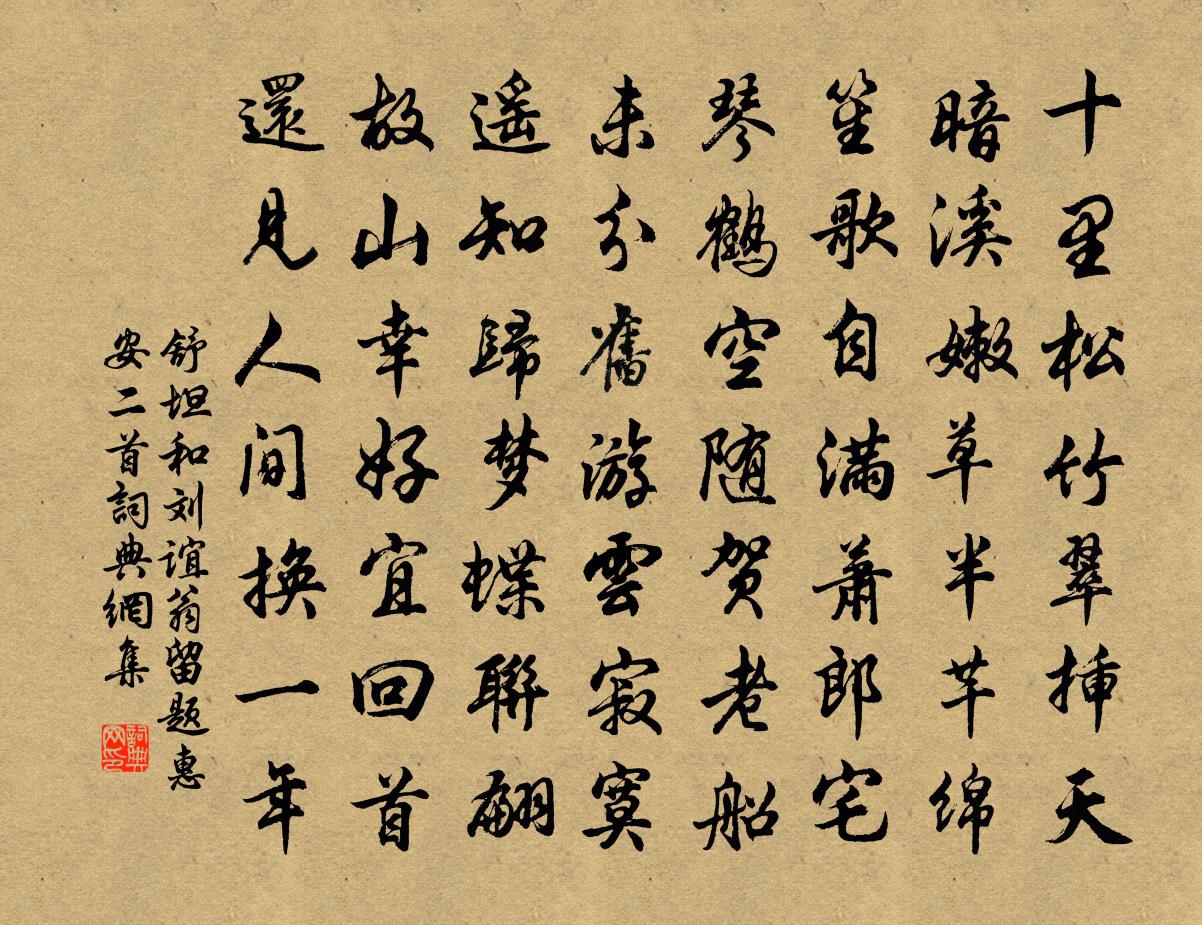 十里松竹翠插天
暗溪嫩草半芊绵
笙歌自满萧郎宅
琴鹤空随贺老船
未分舊游雲寂寞
遥知歸梦蝶聯翩
故山幸好宜回首
還見人间换一年
舒坦和刘谊翁留题惠
安二首詞典網集
詞典
网印